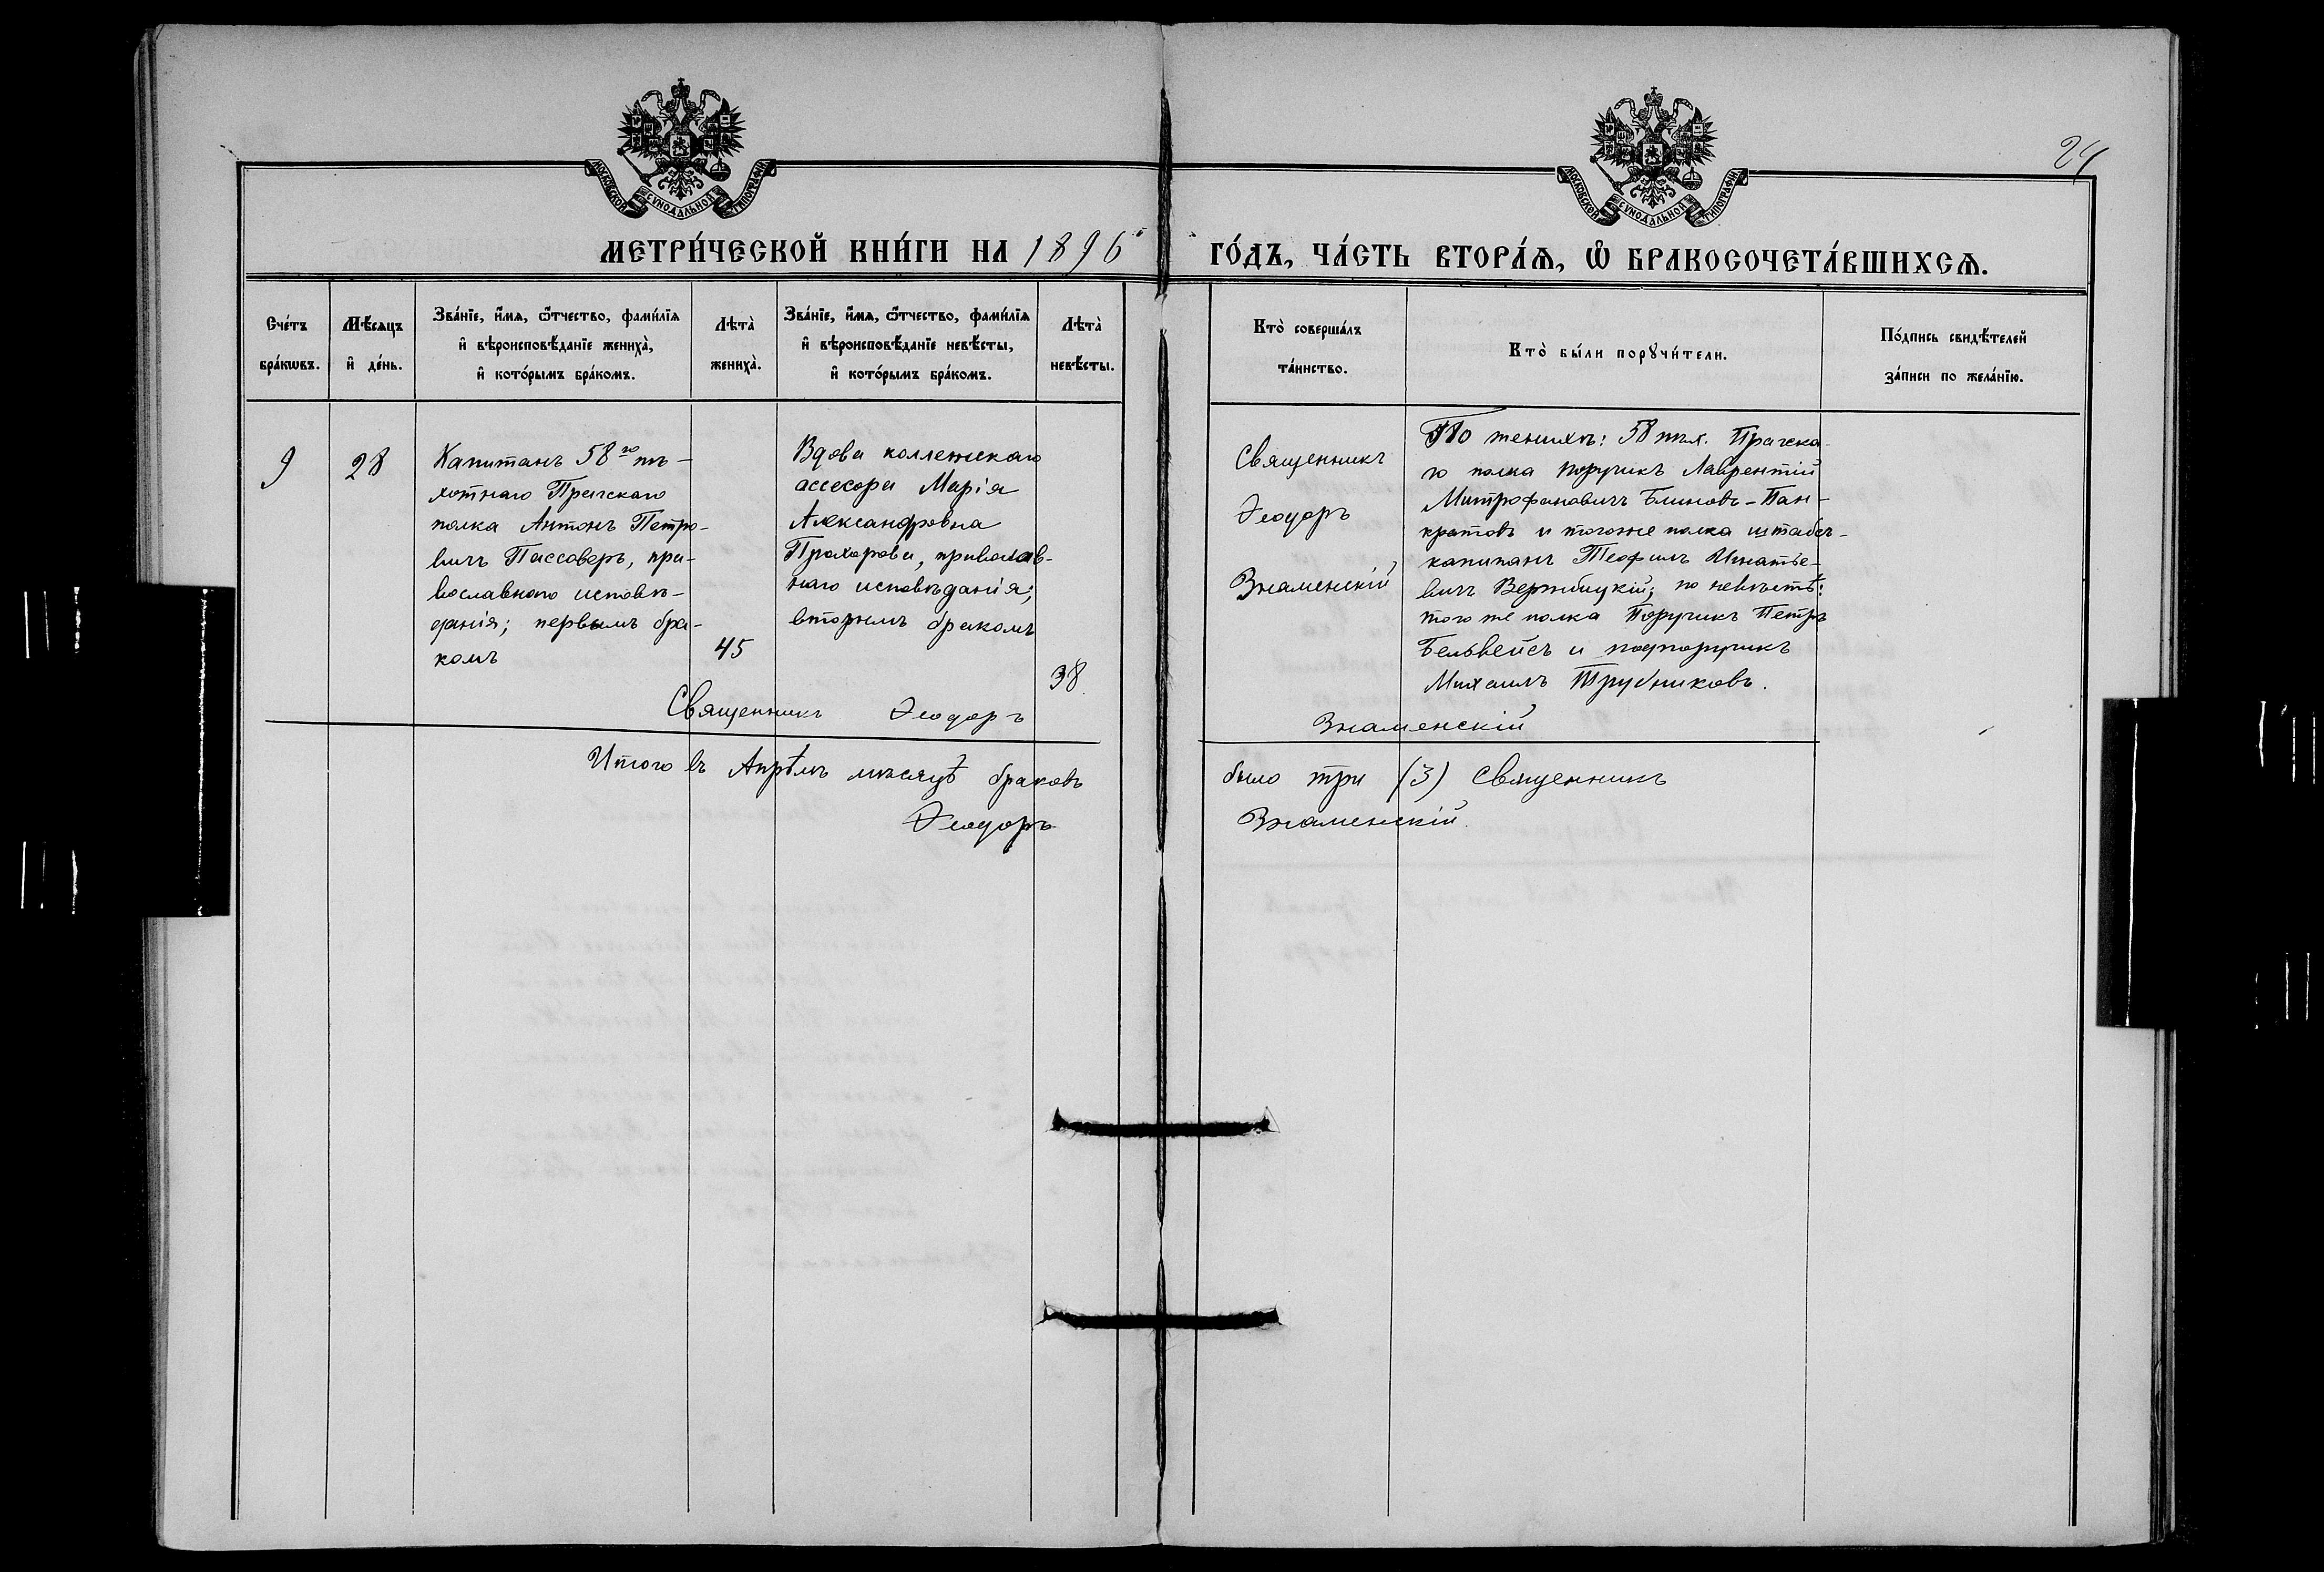 24
МОСКОВСКОЙ СѴНОДАЛЬНОЙ ТИПОГРАФІИ
МОСКОВСКОЙ СѴНОДАЛЬНОЙ ТИПОГРАФІИ
МЕТРИ́ЧЕСКОЙ КНИ́ГИ НА 1896 ГО́ДЪ, ЧА́СТЬ ВТОРА́Ѧ, Ѡ҆ БРАКОСОЧЕТА́ВШИХСѦ.
Сче́тъ
бра́кѡвъ.
Мѣ́сѧцъ
и҆ де́нь.
Зва́нїе, и҆́мѧ, ѻ҆́тчество, фами́лїѧ
и҆ вѣроисповѣ́данїе жениха̀,
и҆ кото́рымъ бра́комъ.
Лѣта̀
жениха̀.
Зва́нїе, и҆́мѧ, ѻ҆́тчество, фами́лїѧ
и҆ вѣроисповѣ́данїе невѣ́сты,
и҆ кото́рымъ бра́комъ.
Лѣта̀
невѣ́сты.
Кто̀ соверша́лъ
та́инство.
Кто̀ бы́ли порꙋчи́тели.
По́дпись свидѣ́телей
за́писи по жела́нїю.
9
28
Капитанъ 58го пѣ-
хотнаго Пражскаго
полка Антонъ Петро-
вичъ Пассоверъ, пра-
вославнаго исповѣ-
данія; первымъ бра-
комъ
45
Вдова коллежскаго
ассесора Марія
Александровна
Прохорова, православ-
наго исповѣданія;
вторымъ бракомъ
38.
Священникъ
Ѳеодоръ
Знаменскій
По женихѣ: 58 пѣх. Пражска-
го полка поручикъ Лаврентій
Митрофановичъ Блиновъ-Пан-
кратовъ и тогоже полка штабсъ-
капитанъ Теофилъ Игнатье-
вичъ Вержбицкій; по невѣстѣ:
того же полка Поручикъ Петръ
Бельвейсъ и подпоручикъ
Михаилъ Трубниковъ.
Священникъ Ѳеодоръ Знаменскій
Итого въ Апрѣлѣ мѣсяцѣ браковъ было три (3) Священникъ
Ѳеодоръ Знаменскій.